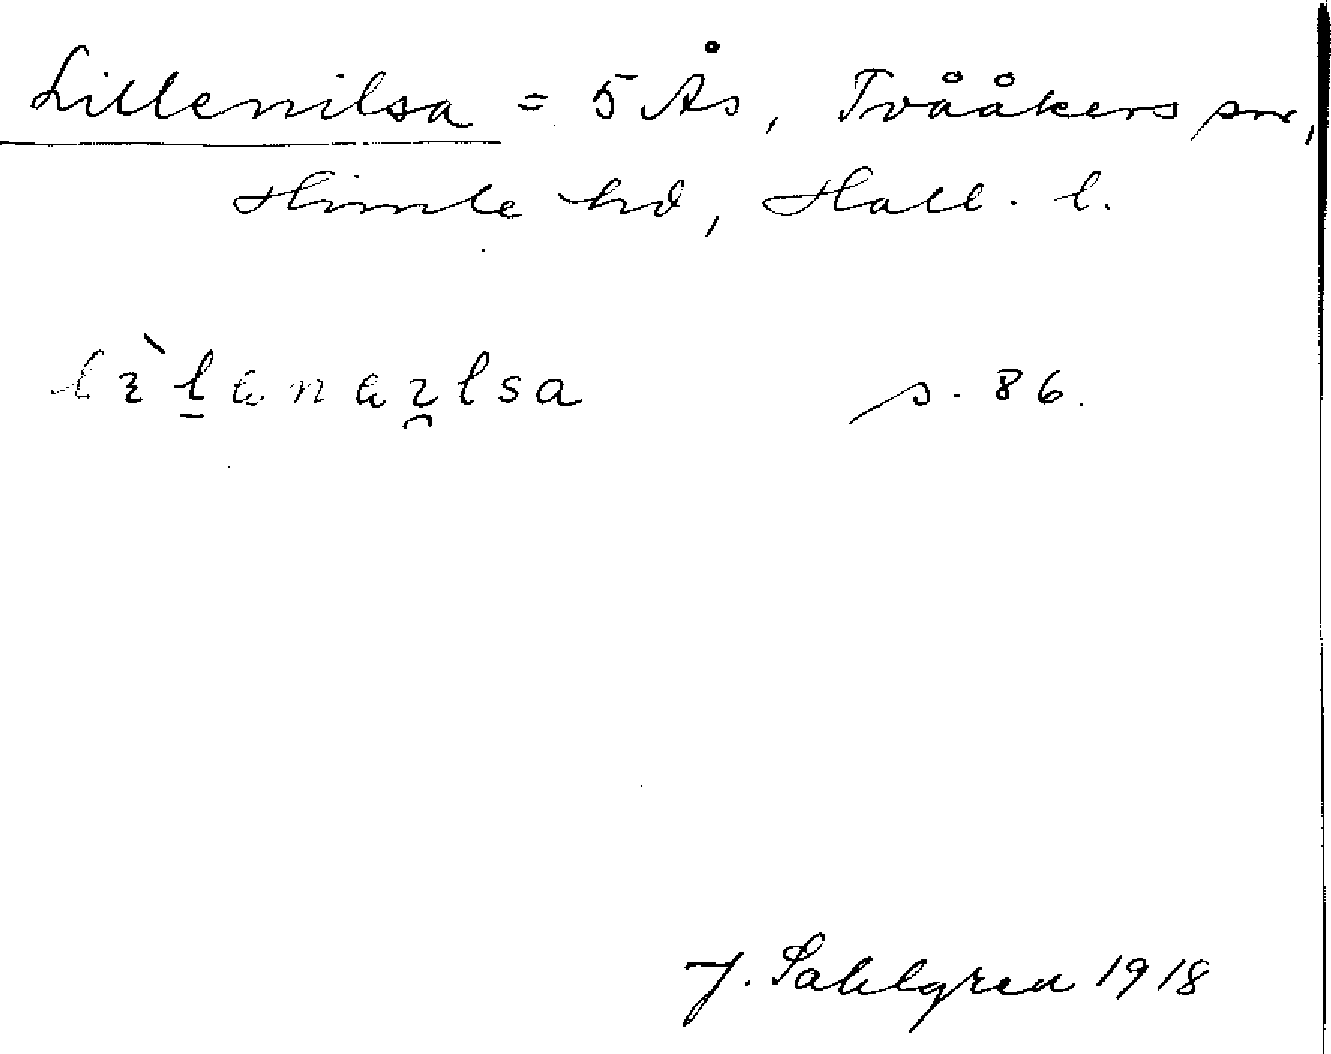 Lillenilsa = 5 Ås, Tvååkers sn,
Himle hd, Hall. l.
s. 86.
J. Sahlgren 1918